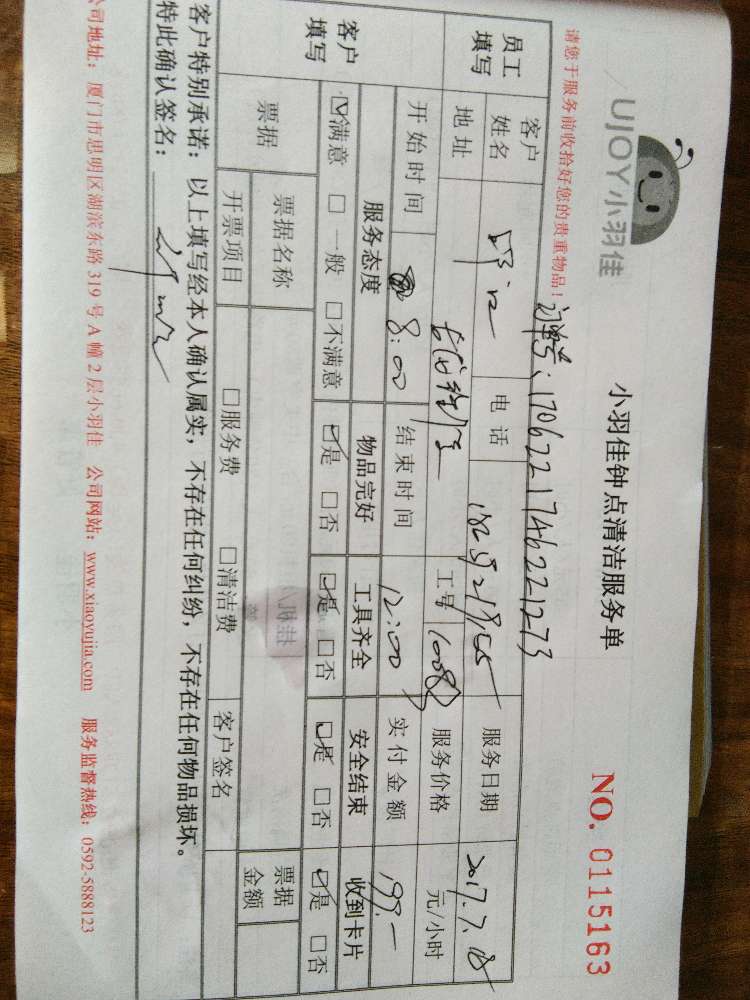 UJOY小羽佳
小羽佳钟点清洁服务单
NO. 0115163
请您于服务前收拾好您的贵重物品！
订单号：170622174622127 3
员工填写
客户姓名
电话
服务日期 2017.7.18
地址
工号
服务价格 元/小时
开始时间 8:00 结束时间 12:00 实付金额 199.-
客户填写
服务态度 物品完好 工具齐全 安全结束 收到卡片
☑满意 □一般 □不满意 ☑是 □否 ☑是 □否 ☑是 □否 ☑是 □否
票据
票据名称
票据金额
开票项目 □服务费 □清洁费 客户签名
客户特别承诺：以上填写经本人确认属实，不存在任何纠纷，不存在任何物品损坏。
特此确认签名：
公司地址：厦门市思明区湖滨东路 319 号 A 幢 2 层小羽佳 公司网站：www.xiaoyujia.com 服务监督热线：0592-5888123